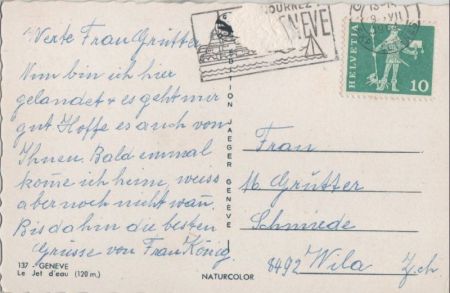 Werte Frau Grütter
Nun bin ich hier
gelandet + es geht mir
gut Hoffe es auch von
Ihnen. Bald einmal
kome ich heim, weiss
aber noch nicht wan.
Bis dahin die besten
Grüsse von Frau König.
137 - GENEVE
Le Jet d'eau (120 m.)
EDITION JAEGER GENÈVE
NATURCOLOR
GENEVE
VII
HELVETIA
10
Frau
M. Grütter
Schmiede
8492 Wila Zch